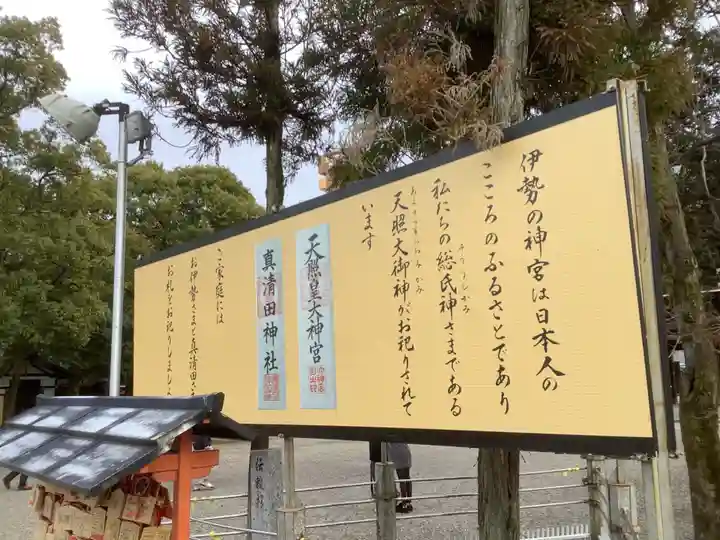 伊勢の神宮は日本人の
こころのふるさとであり
私たちの総氏神さまである
そううじがみ
天照大御神がお祀りされて
あまてらすおおみかみ
います
天照皇大神宮
真清田神社
ご家庭には
お伊勢さまと真清田さ
お札をお祀りしましょ